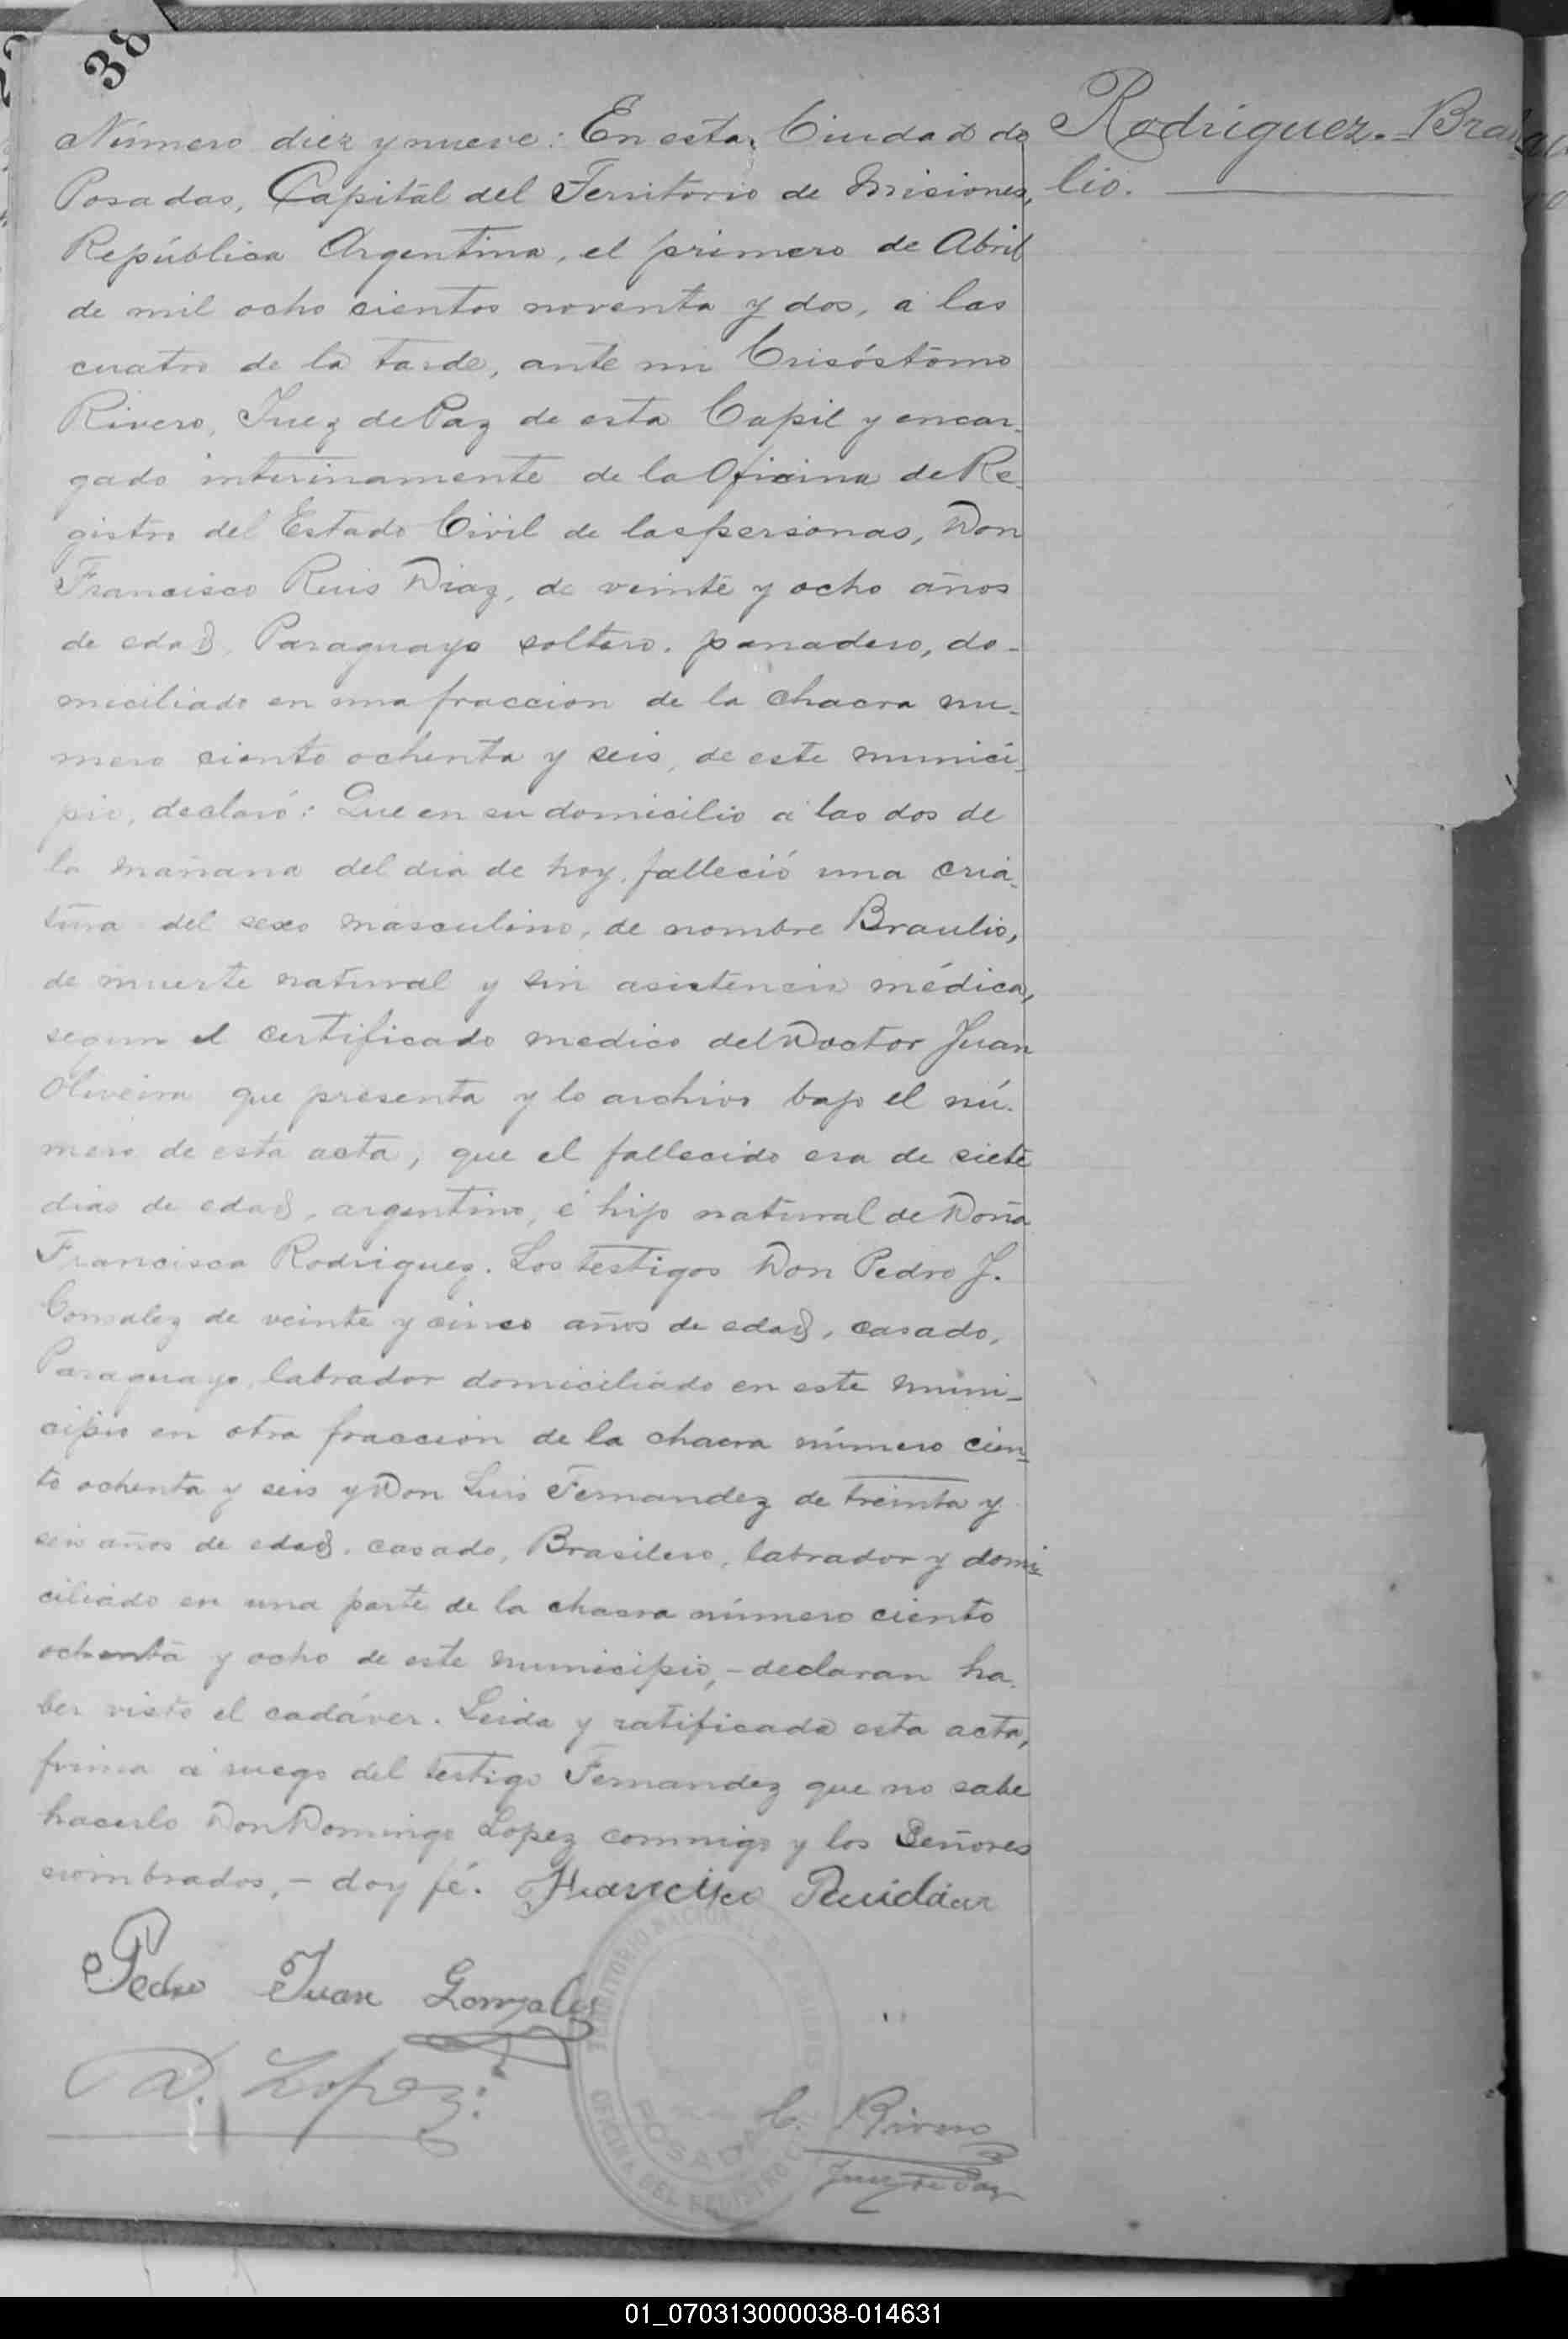 38
Número diez y nueve: En esta Ciudad de
Posadas, Capital del Territorio de Misiones,
República Argentina, el primero de Abril
de mil ocho cientos noventa y dos, a las
cuatro de la tarde, ante mi Crisóstomo
Rivero, Juez de Paz de esta Capil y encar-
gado interinamente de la Oficina de Re-
gistro del Estado Civil de las personas, Don
Francisco Ruis Diaz, de veinte y ocho años
de edad, Paraguayo soltero, panadero, do-
miciliado en una fraccion de la chacra nu-
mero ciento ochenta y seis, de este munici-
pio, declaró: Que en su domicilio a las dos de
la mañana del dia de hoy, falleció una cria-
tura del sexo masculino, de nombre Braulio,
de muerte natural y sin asistencia médica,
segun el certificado medico del Doctor Juan
Oliveira que presenta y lo archivo bajo el nú-
mero de esta acta, que el fallecido era de siete
dias de edad, argentino, é hijo natural de Doña
Francisca Rodriguez. Los testigos Don Pedro J.
Gonzalez de veinte y cinco años de edad, casado,
Paraguayo, labrador domiciliado en este muni-
cipio en otra fraccion de la chacra número cien-
to ochenta y seis y Don Luis Fernandez de treinta y
seis años de edad, casado, Brasilero, labrador y domi-
ciliado en una parte de la chacra número ciento
ochenta y ocho de este municipio,- declaran ha-
ber visto el cadáver. Leida y ratificada esta acta,
firma á ruego del testigo Fernandez que no sabe
hacerlo Don Domingo Lopez conmigo y los Señores
nombrados,- doy fé. Francisco Ruidiaz
Pedro Juan Gonzales
D. Lopez
C. Rivero
Juez de Paz
Rodriguez.- Brau-
lio.
TERRITORIO NACIONAL
POSADAS
OFICINA DEL REGISTRO
01_070313000038-014631